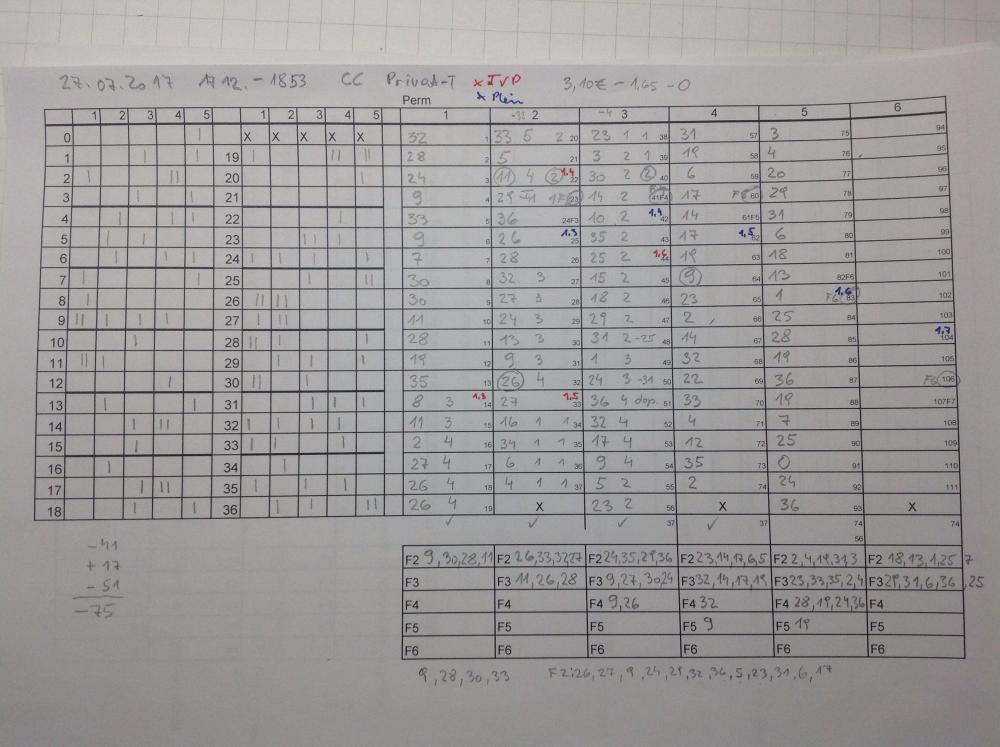 27.07.2017 1712.-1853 CC Privat-T x TVP 3,10€ - 1,65 - 0
Perm x Plein
1 2 3 4 5 1 2 3 4 5 1 -31 2 -4 3 4 5 6
0 X X X X X 32 1 33 5 2 20 23 1 1 38 31 57 3 75 94
1 19 28 2 5 21 3 2 1 39 19 58 4 76 95
2 20 24 3 11 4 2 1,4 22 30 2 2 40 6 59 20 77 96
3 21 9 4 29 1F 23 14 2 41F4 17 F5 60 29 78 97
4 22 33 5 36 24F3 10 2 1,4 42 14 61F5 31 79 98
5 23 9 6 26 1,3 25 35 2 43 17 1,5 62 6 80 99
6 24 7 7 28 26 25 2 1,6 44 19 63 18 81 100
7 25 30 8 32 3 27 15 2 45 9 64 13 82F6 101
8 26 30 9 27 3 28 18 2 46 23 65 1 1,6 F6 83 102
9 27 11 10 24 3 29 29 2 47 2 66 25 84 103
10 28 28 11 13 3 30 31 2 -25 48 14 67 28 85 1,7 104
11 29 19 12 9 3 31 1 3 49 32 68 19 86 105
12 30 35 13 26 4 32 24 3 -31 50 22 69 36 87 F6 106
13 31 8 3 1,3 14 27 1,5 33 36 4 dop. 51 33 70 19 88 107F7
14 32 11 3 15 16 1 1 34 32 4 52 4 71 7 89 108
15 33 2 4 16 34 1 1 35 17 4 53 12 72 25 90 109
16 34 27 4 17 6 1 1 36 9 4 54 35 73 0 91 110
17 35 26 4 18 4 1 1 37 5 2 55 2 74 24 92 111
18 36 26 4 19 X 23 2 56 X 36 93 X
37 37 74 74
56
-41
+17
-51
-75
F2 9,30,28,11 F2 26,33,32,27 F2 24,35,29,36 F2 23,14,17,6,5 F2 2,4,19,31,3 F2 18,13,1,25 7
F3 F3 11,26,28 F3 9,27,30,24 F3 32,14,17,19 F3 23,33,35,2,4 F3 29,31,6,36,25
F4 F4 F4 9,26 F4 32 F4 28,19,24,36 F4
F5 F5 F5 F5 9 F5 19 F5
F6 F6 F6 F6 F6 F6
9,28,30,33 F2:26,27,9,24,29,32,36,5,23,31,6,17